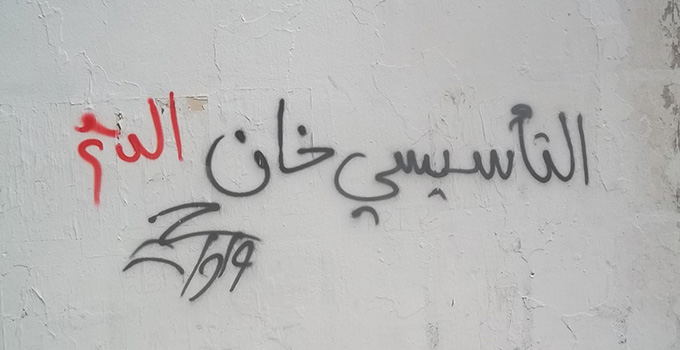 التأسيسي خان الدم